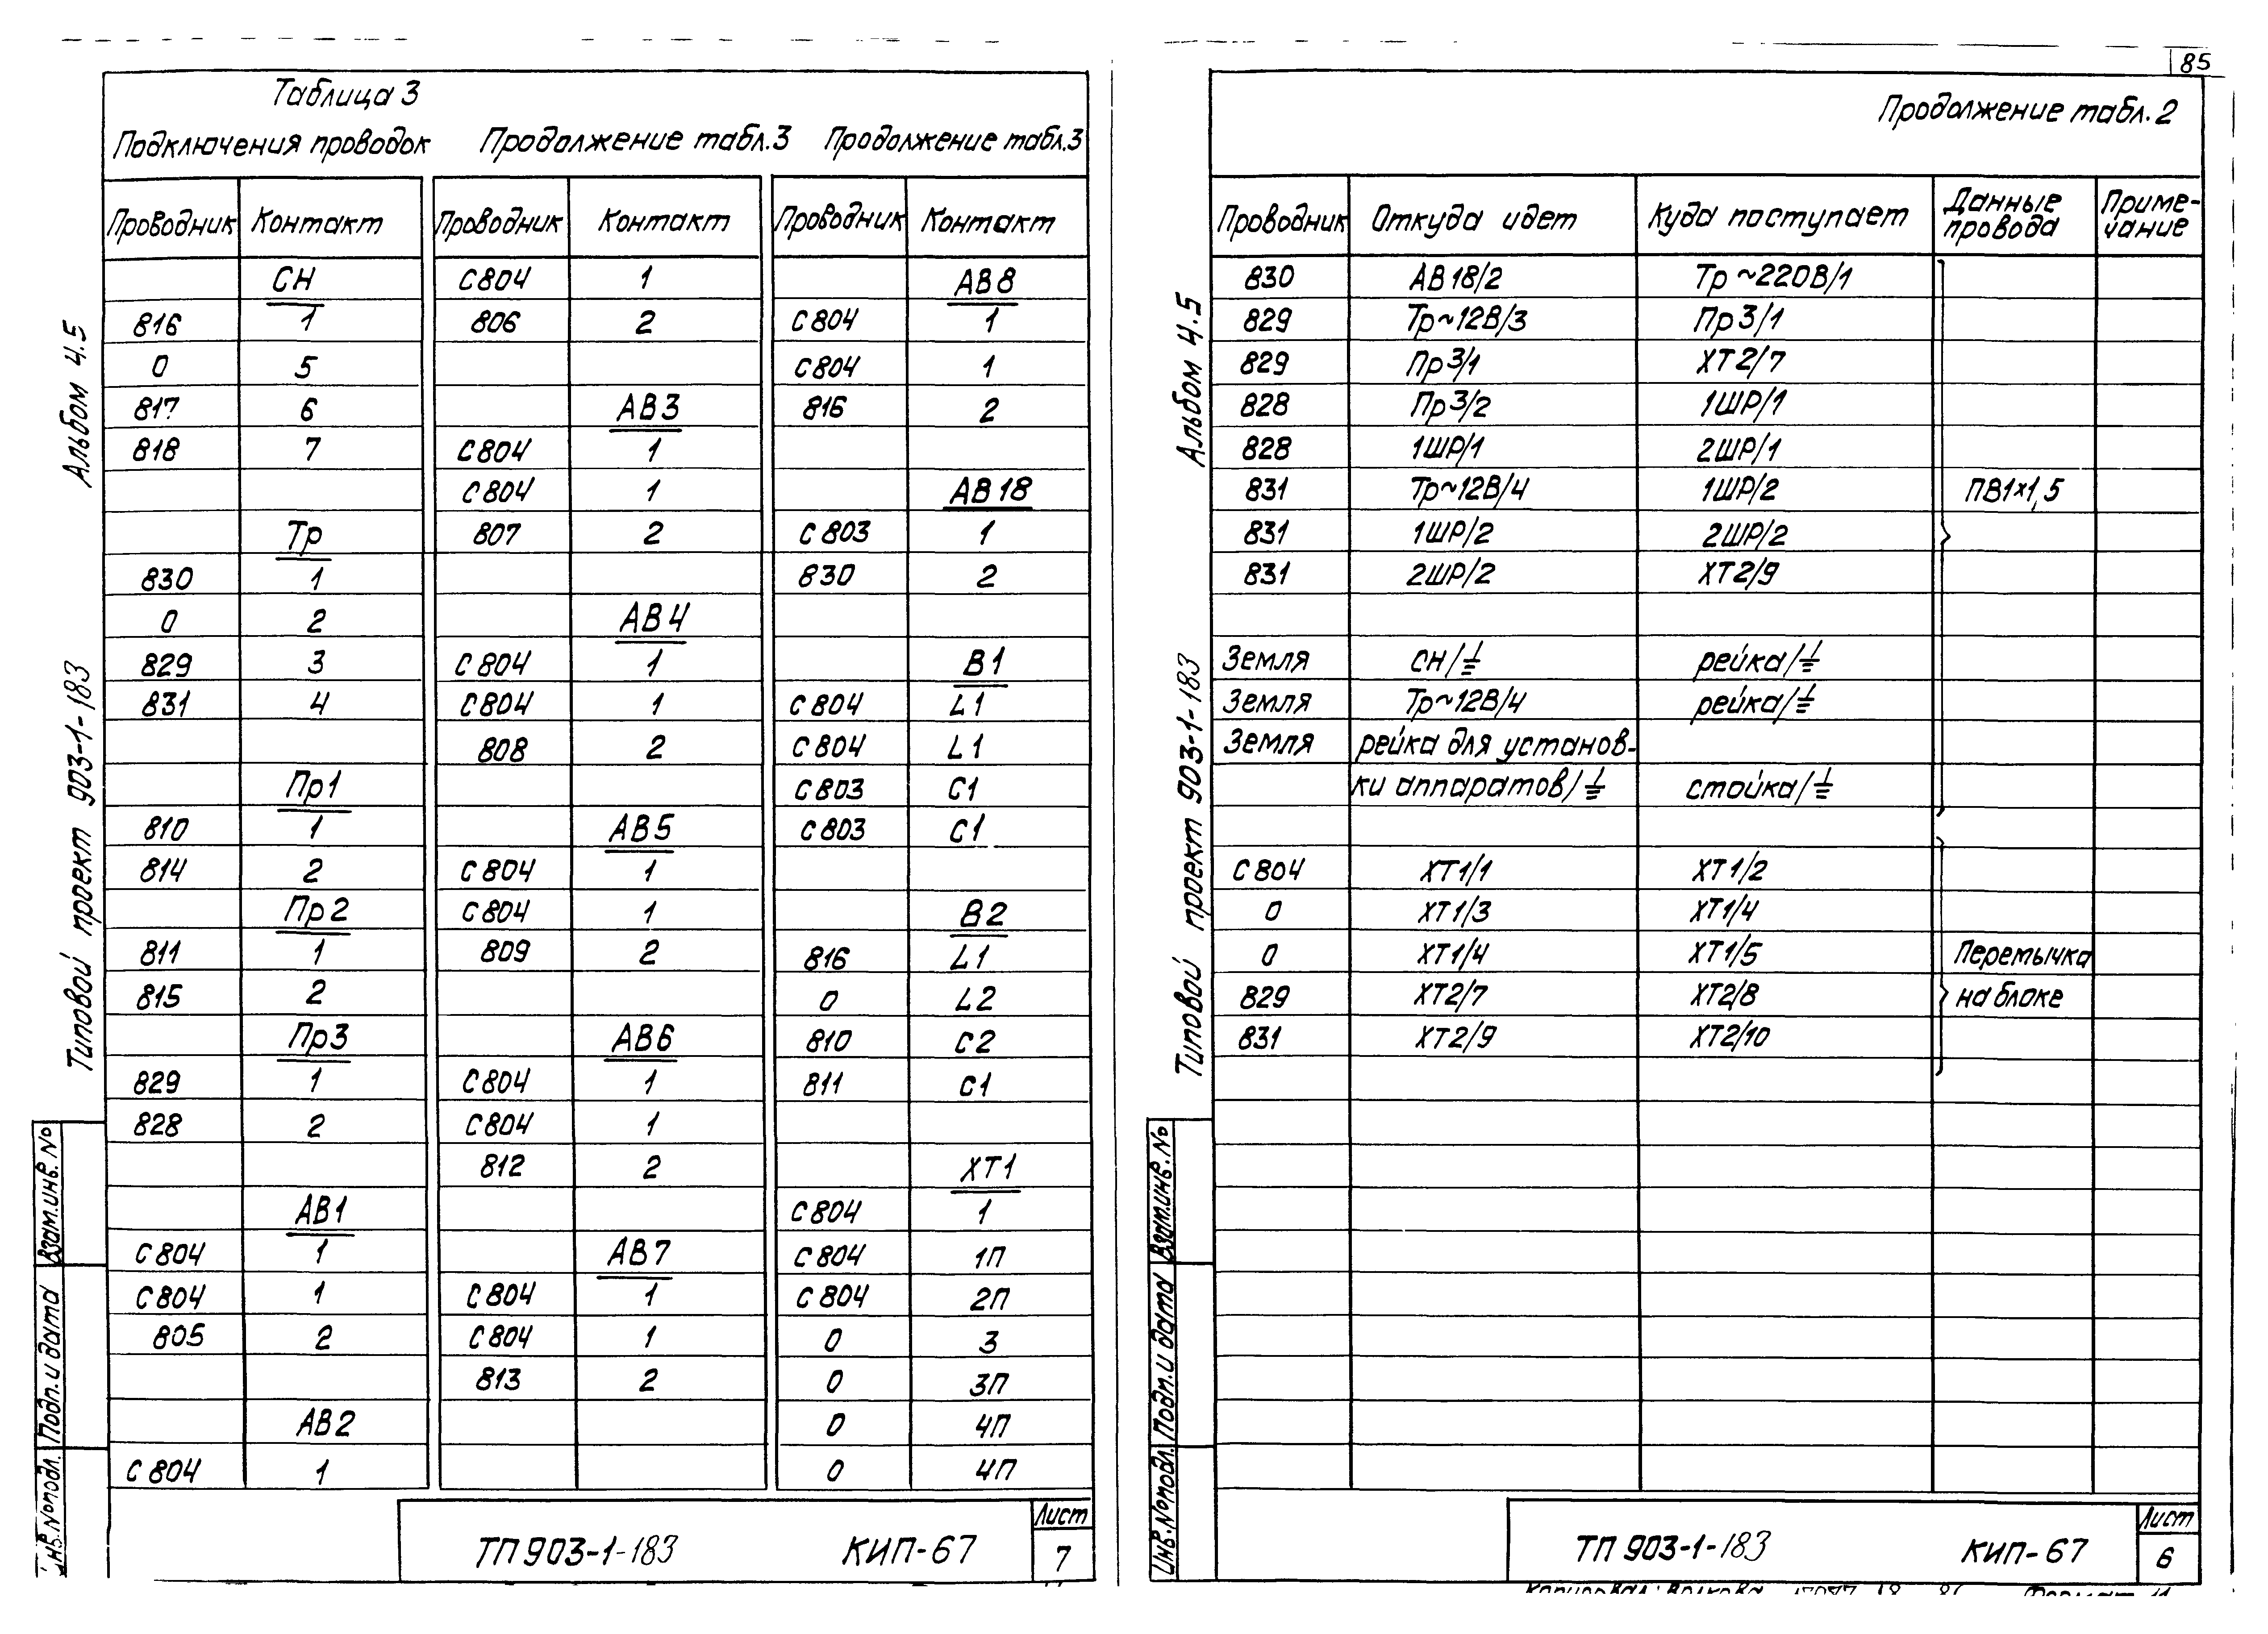 Таблица 3
Подключения проводок
Продолжение табл.3
Продолжение табл.3
Проводник Контакт
СН
816 1
0 5
817 6
818 7
Тр
830 1
0 2
829 3
831 4
Пр1
810 1
814 2
Пр2
811 1
815 2
Пр3
829 1
828 2
АВ1
С804 1
С804 1
805 2
АВ2
С804 1
Проводник Контакт
С804 1
806 2
АВ3
С804 1
С804 1
807 2
АВ4
С804 1
С804 1
808 2
АВ5
С804 1
С804 1
809 2
АВ6
С804 1
С804 1
812 2
АВ7
С804 1
С804 1
813 2
Проводник Контакт
АВ8
С804 1
С804 1
816 2
АВ18
С803 1
830 2
В1
С804 L1
С804 L1
С803 С1
С803 С1
В2
816 L1
0 L2
810 С2
811 С1
ХТ1
С804 1
С804 1П
С804 2П
0 3
0 3П
0 4П
0 4П
Альбом 4.5
Типовой проект 903-1-183
Взам.инв.№
Подп. и дата
Инв.№подл.
ТП 903-1-183 КИП-67
Лист
7
85
Продолжение табл.2
Проводник Откуда идет Куда поступает Данные провода Приме-
чание
830 АВ18/2 Тр~220В/1
829 Тр~12В/3 Пр3/1
829 Пр3/1 ХТ2/7
828 Пр3/2 1ШР/1
828 1ШР/1 2ШР/1
831 Тр~12В/4 1ШР/2 ПВ1×1,5
831 1ШР/2 2ШР/2
831 2ШР/2 ХТ2/9
Земля СН/⏚ рейка/⏚
Земля Тр~12В/4 рейка/⏚
Земля рейка для установ-
ки аппаратов/⏚ стойка/⏚
С804 ХТ1/1 ХТ1/2
0 ХТ1/3 ХТ1/4
0 ХТ1/4 ХТ1/5 Перемычка
829 ХТ2/7 ХТ2/8 на блоке
831 ХТ2/9 ХТ2/10
Альбом 4.5
Типовой проект 903-1-183
Взам.инв.№
Подп. и дата
Инв.№подл.
ТП 903-1-183 КИП-67
Лист
6